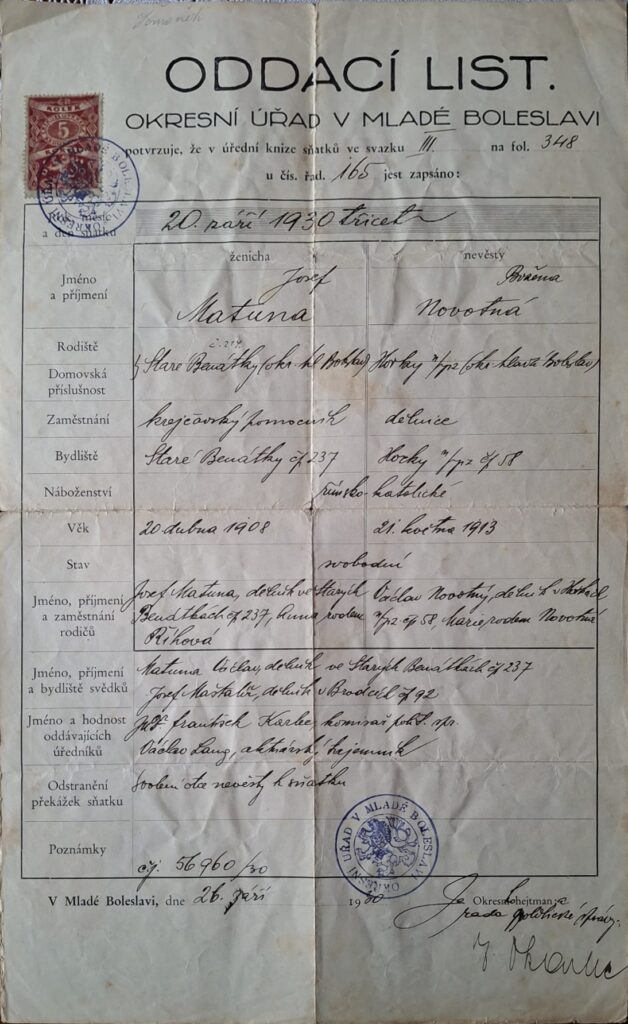 ODDACÍ LIST.
OKRESNÍ ÚŘAD V MLADÉ BOLESLAVI
KOLEK
5
potvrzuje, že v úřední knize sňatků ve svazku III. na fol. 348
u čís. řad. 165 jest zapsáno:
Rok, měsíc a den sňatku
20. září 1930 třicet
ženicha nevěsty
Jméno a příjmení
Josef Božena
Matuna Novotná
Rodiště
Domovská příslušnost
č. 214
Staré Benátky (okr. Ml. Boleslav) Horky n/Jiz (okr. Mladá Boleslav)
Zaměstnání krejčovský pomocník dělnice
Bydliště Staré Benátky čp 237 Horky n/Jiz čp 58
Náboženství římsko-katolické
Věk 20 dubna 1908 21. května 1913
Stav svobodní
Jméno, příjmení a zaměstnání rodičů
Josef Matuna, dělník ve Starých Václav Novotný, dělník v Horkách
Benátkách čp 237, Anna rodem n/Jiz čp 58, Marie, rodem Novotná
Říhová
Jméno, příjmení a bydliště svědků
Matuna Václav, dělník ve Starých Benátkách čp 237
Josef Maštalíř, dělník v Brodcích čp 92
Jméno a hodnost oddávajících úředníků
JUDr František komisař polit. spr.
Václav Lang, aktuárský tajemník
Odstranění překážek sňatku
svolení otce nevěsty k sňatku
Poznámky
čj. 56960/30
OKRESNÍ ÚŘAD V MLADÉ BOLESLAVI
V Mladé Boleslavi, dne 26. září 1930
Okresní hejtman:
rada politické správy: